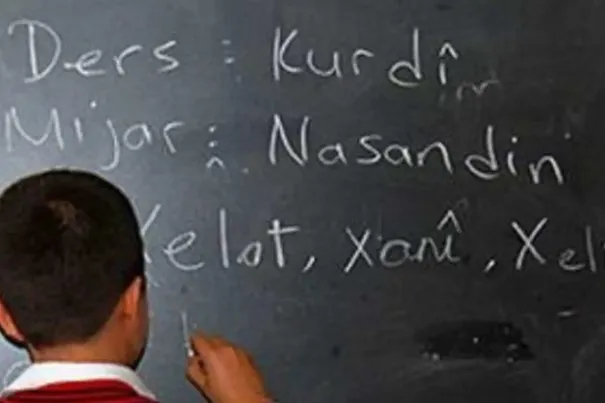 Ders : Kurdî
Mijar : Nasandin
Xelat, xanî, Xel